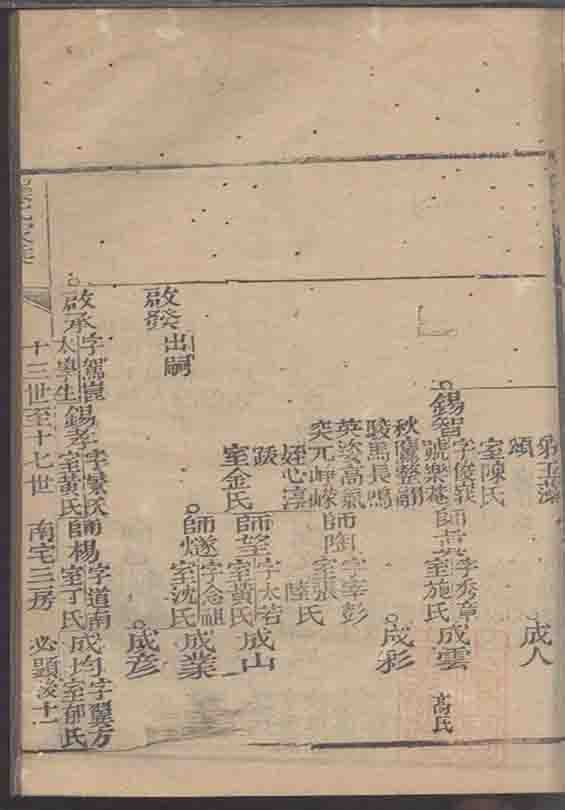 成人
室陳氏
頌
錫智
字俊峩
號樂菴
師
字秀章
室施氏
成雲
高氏
秋鷹整翮
駿馬長鳴
英姿高氣
突元崢嶸
姪心淳
跋
成彩
師陶
字宰彭
室張氏
陸氏
室金氏
師望
字太若
室黃氏
成山
師燧
字念祖
室沈氏
成業
啟發
出嗣
成彥
啟承
字駕崑
太學生
錫孝
室黃氏
師楊
字道南
室丁氏
成均
字翼方
室郁氏
十三世至十七世
南宅三房
必顯
十一